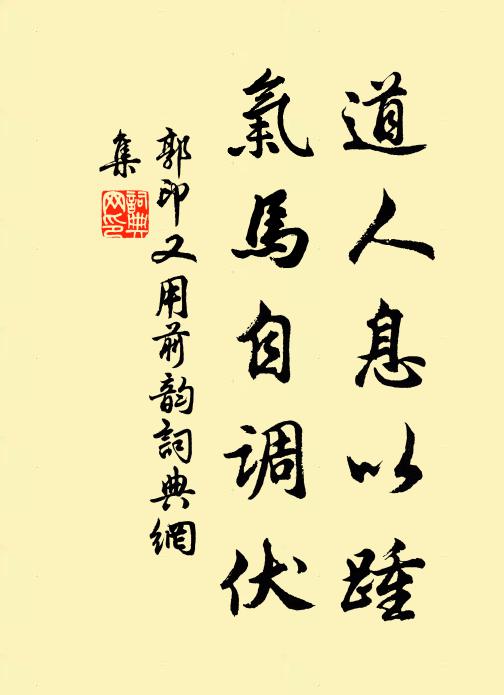 道人息以踵
氣馬自调伏
郭印又用前韵詞典網
集
詞典網印